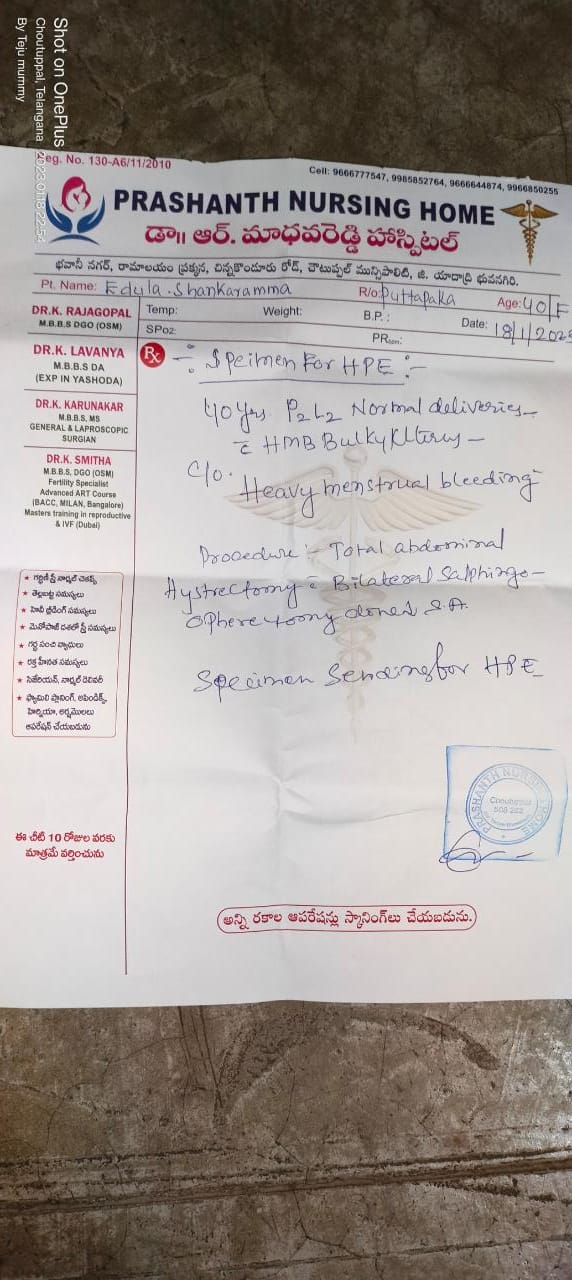 Shot on OnePlus
Choutuppal, Telangana 2023.01.18 22:54
By Teju mummy
Reg. No. 130-A6/11/2010
Cell: 9666777547, 9985852764, 9666644874, 9966850255
PRASHANTH NURSING HOME
డా॥ ఆర్. మాధవరెడ్డి హాస్పిటల్
భవానీ నగర్, రామాలయం ప్రక్కన, చిన్నకొండూరు రోడ్, చౌటుప్పల్ మున్సిపాలిటీ, జి. యాదాద్రి భువనగిరి.
Pt. Name: Edula. Shankaramma R/o: Puttapaka Age: 40/F
Temp: Weight: B.P.: Date: 18/1/202
SPo2: PR
DR.K. RAJAGOPAL
M.B.B.S DGO (OSM)
DR.K. LAVANYA
M.B.B.S DA
(EXP IN YASHODA)
DR.K. KARUNAKAR
M.B.B.S, MS
GENERAL & LAPROSCOPIC
SURGIAN
DR.K. SMITHA
M.B.B.S, DGO (OSM)
Fertility Specialist
Advanced ART Course
(BACC, MILAN, Bangalore)
Masters training in reproductive
& IVF (Dubai)
★ గర్భిణీ స్త్రీ నార్మల్ చెకప్స్
★ తెల్లబట్ట సమస్యలు
★ హెవీ బ్లీడింగ్ సమస్యలు
★ మెనోపాజ్ దశలో స్త్రీ సమస్యలు
★ గర్భ సంచి వ్యాధులు
★ రక్త హీనత సమస్యలు
★ సిజేరియన్, నార్మల్ డెలివరీ
★ ఫ్యామిలి ప్లానింగ్, అపెండిక్స్,
హెర్నియా, అర్శమొలలు
ఆపరేషన్ చేయబడును
ఈ చీటి 10 రోజుల వరకు
మాత్రమే వర్తించును
Rx -: Specimen For HPE :-
40 yrs P2L2 Normal deliveries -
c̄ HMB Bulky Uterus -
C/o. Heavy menstrual bleeding -
Procedure :- Total abdominal
Hystrectomy c̄ Bilateral Salphingo -
Opherectomy done S.A.
Specimen Sending for HPE
PRASHANTH NURSING HOME
Choutuppal
508 252
అన్ని రకాల ఆపరేషన్లు స్కానింగ్‌లు చేయబడును.